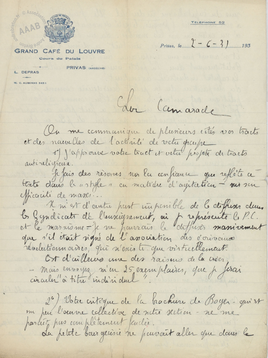 TÉLÉPHONE 52
AAAB
GRAND CAFÉ DU LOUVRE
PRIVAS
L. DEPRAS
Privas, le 2-6-31 193
Cher Camarade
On me communique de plusieurs côtés vos tracts
et des nouvelles de l'activité de votre groupe
1) J'approuve votre tract et votre projet de tracts
anti-religieux.
Je fais des réserves sur la confiance que reflète ce
texte dans le en matière d'agitation - sur son
efficacité de masse.
Il m'est d'autre part impossible de le diffuser dans
le Syndicat de l'enseignement, où je représente le P.C.
et le marxisme. Je ne pourrais le diffuser
que s'il était signé de l'association des écrivains
révolutionnaires, qui n'existe que virtuellement.
C'est d'ailleurs une des raisons de la créer.
- mais envoyez m'en 25 exemplaires, que je ferai
circuler à titre individuel.
2°) Votre critique de la brochure de Boyer : qui est
un peu l'œuvre collective de notre section - ne me
paraît pas complètement juste.
La petite bourgeoisie ne pouvait aller que dans le